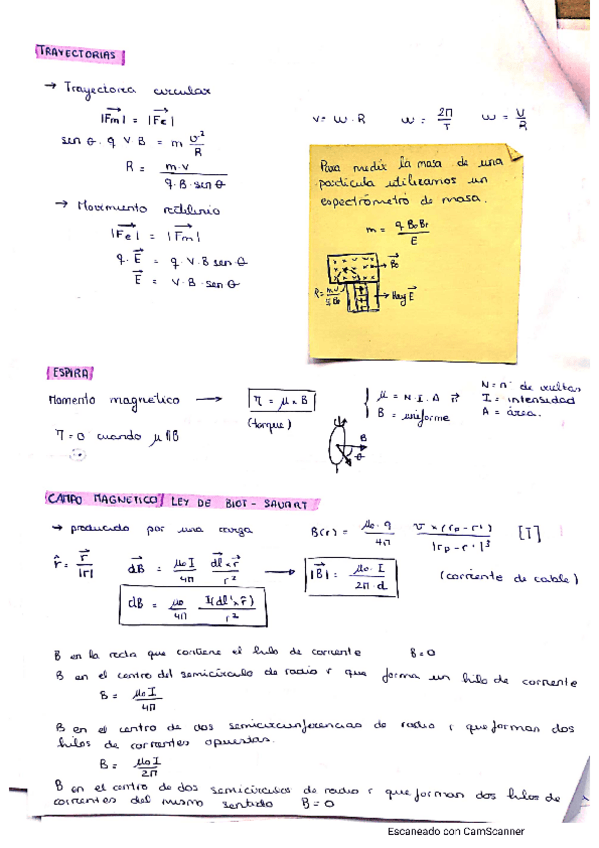 TRAYECTORIAS
→ Trayectoria circular
|Fm| = |Fc|
v = ω · R   ω = 2π/T   ω = V/R
sen θ · q V · B = m v²/R
R = m · v / q · B · sen θ
→ Movimiento rectilineo
|Fe| = |Fm|
q · E = q V · B sen θ
E = V · B · sen θ
Para medir la masa de una
partícula utilizamos un
espectrómetro de masa.
m = q B₀ Br / E
B₀
Hay E
ESPIRA
Momento magnetico → τ = μ × B
(torque)
μ = N · I · A
B = uniforme
N = nº de vueltas
I = intensidad
A = área.
τ = 0 cuando μ || B
B
θ
CAMPO MAGNETICO / LEY DE BIOT - SAVART
→ producido por una carga   B(r) = μ₀ · q / 4π   v × (rp - r') / |rp - r'|³   [T]
r̂ = r / |r|   dB = μ₀ I / 4π   dl × r / r² → |B| = μ₀ · I / 2π · d   (corriente de cable)
dB = μ₀ / 4π   I(dl × r̂) / r²
B en la recta que contiene el hilo de corriente   B = 0
B en el centro del semicírculo de radio r que forma un hilo de corriente
B = μ₀ I / 4π
B en el centro de dos semicircunferencias de radio r que forman dos
hilos de corrientes opuestas.
B = μ₀ I / 2π
B en el centro de dos semicírculos de radio r que forman dos hilos de
corrientes del mismo sentido   B = 0
Escaneado con CamScanner